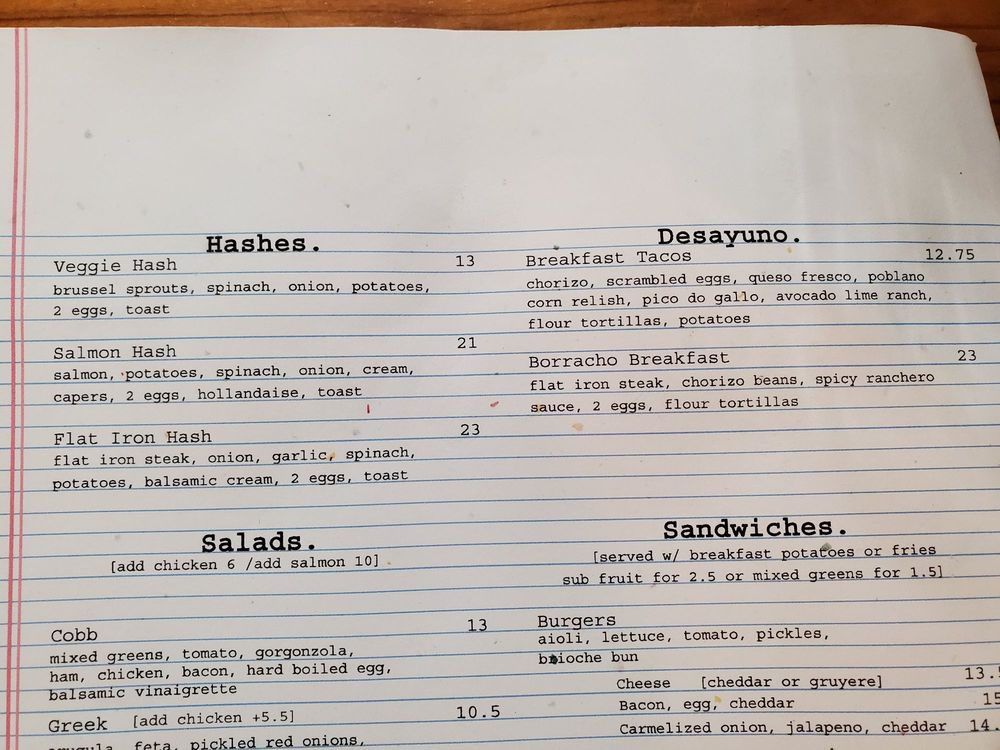 Hashes.
Veggie Hash 13
brussel sprouts, spinach, onion, potatoes,
2 eggs, toast
Salmon Hash 21
salmon, potatoes, spinach, onion, cream,
capers, 2 eggs, hollandaise, toast
Flat Iron Hash 23
flat iron steak, onion, garlic, spinach,
potatoes, balsamic cream, 2 eggs, toast
Desayuno.
Breakfast Tacos 12.75
chorizo, scrambled eggs, queso fresco, poblano
corn relish, pico do gallo, avocado lime ranch,
flour tortillas, potatoes
Borracho Breakfast 23
flat iron steak, chorizo beans, spicy ranchero
sauce, 2 eggs, flour tortillas
Salads.
[add chicken 6 /add salmon 10]
Cobb 13
mixed greens, tomato, gorgonzola,
ham, chicken, bacon, hard boiled egg,
balsamic vinaigrette
Greek [add chicken +5.5] 10.5
feta, pickled red onions,
Sandwiches.
[served w/ breakfast potatoes or fries
sub fruit for 2.5 or mixed greens for 1.5]
Burgers
aioli, lettuce, tomato, pickles,
brioche bun
Cheese [cheddar or gruyere] 13.5
Bacon, egg, cheddar 15
Carmelized onion, jalapeno, cheddar 14.